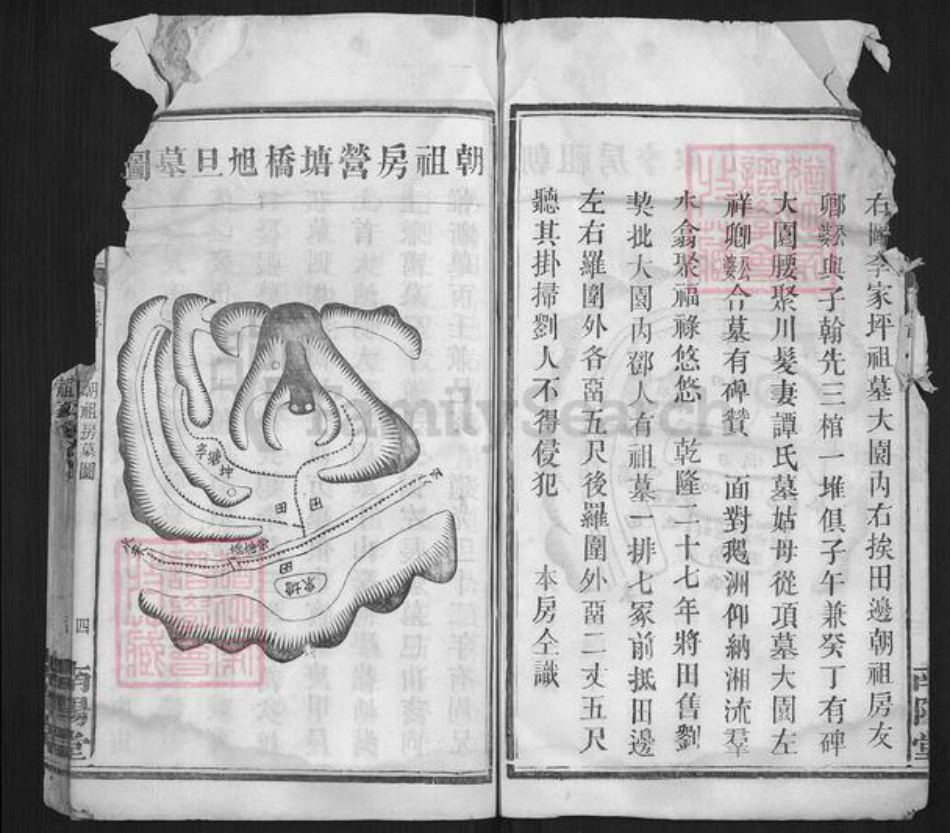 右圖李家坪祖墓大園內右挨田邊朝祖房友
卿公婆與子翰先三棺一堆俱子午兼癸丁有碑
大園腰聚川髮妻譚氏墓姑母從項墓大園左
祥卿公婆合墓有碑贊 面對鵝洲仰納湘流羣
水翕聚福祿悠悠 乾隆二十七年將田售劉
契批大園內鄧人有祖墓一排七冢前抵田邊
左右羅圍外各畱五尺後羅圍外畱二丈五尺
聽其掛掃劉人不得侵犯 本房仝識
南陽堂
朝祖房營塘橋旭旦墓圖
田
田
田
朝祖房墓圖
四
南陽堂
FamilySearch